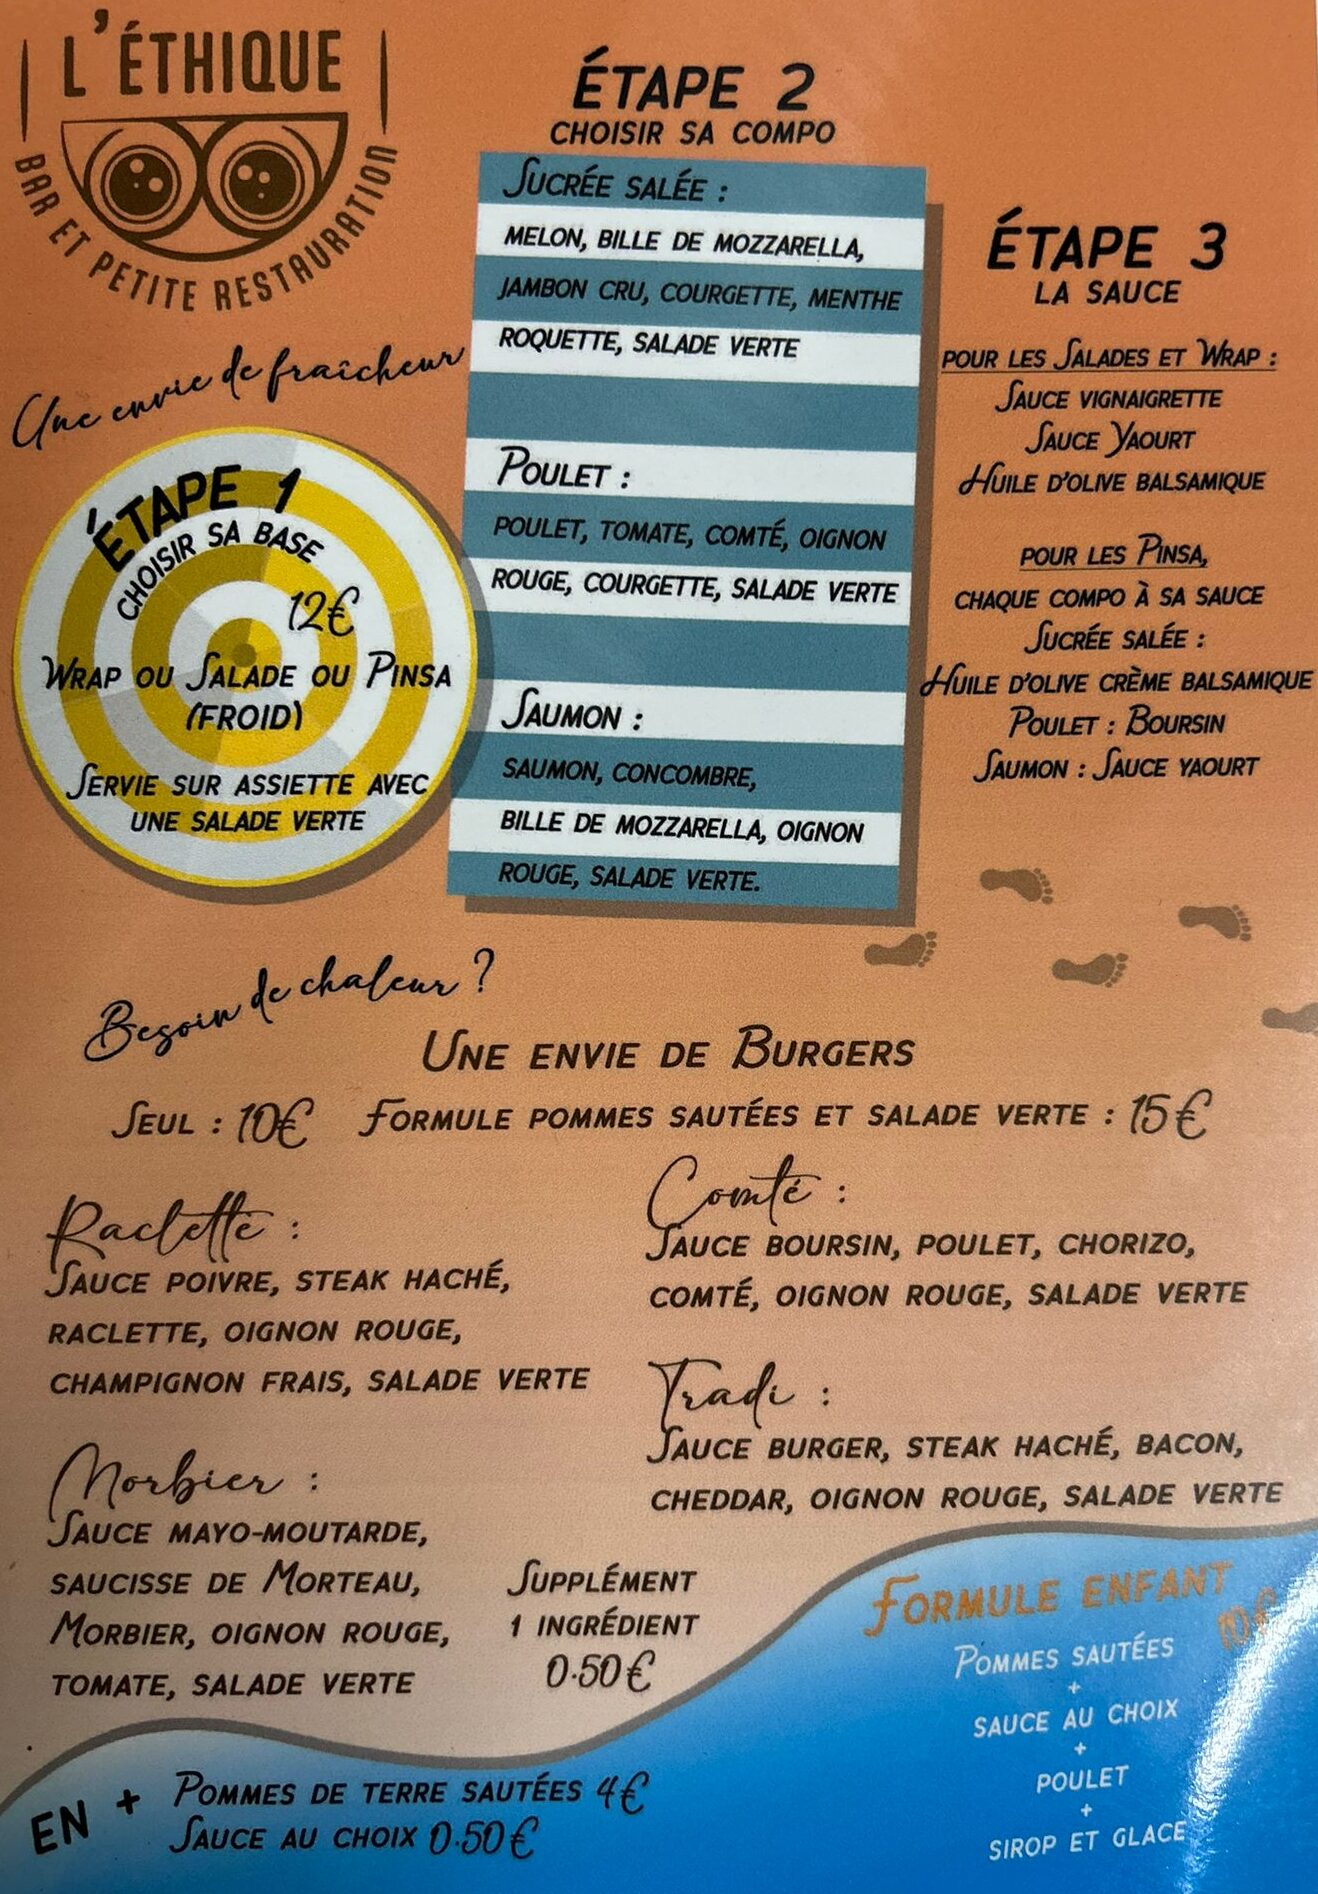 L'ÉTHIQUE
BAR ET PETITE RESTAURATION
Une envie de fraîcheur
ÉTAPE 1
CHOISIR SA BASE
12€
WRAP OU SALADE OU PINSA
(FROID)
SERVIE SUR ASSIETTE AVEC
UNE SALADE VERTE
ÉTAPE 2
CHOISIR SA COMPO
SUCRÉE SALÉE :
MELON, BILLE DE MOZZARELLA,
JAMBON CRU, COURGETTE, MENTHE
ROQUETTE, SALADE VERTE
POULET :
POULET, TOMATE, COMTÉ, OIGNON
ROUGE, COURGETTE, SALADE VERTE
SAUMON :
SAUMON, CONCOMBRE,
BILLE DE MOZZARELLA, OIGNON
ROUGE, SALADE VERTE.
ÉTAPE 3
LA SAUCE
POUR LES SALADES ET WRAP :
SAUCE VIGNAIGRETTE
SAUCE YAOURT
HUILE D'OLIVE BALSAMIQUE
POUR LES PINSA,
CHAQUE COMPO À SA SAUCE
SUCRÉE SALÉE :
HUILE D'OLIVE CRÈME BALSAMIQUE
POULET : BOURSIN
SAUMON : SAUCE YAOURT
Besoin de chaleur ?
UNE ENVIE DE BURGERS
SEUL : 10€ FORMULE POMMES SAUTÉES ET SALADE VERTE : 15€
Raclette :
SAUCE POIVRE, STEAK HACHÉ,
RACLETTE, OIGNON ROUGE,
CHAMPIGNON FRAIS, SALADE VERTE
Comté :
SAUCE BOURSIN, POULET, CHORIZO,
COMTÉ, OIGNON ROUGE, SALADE VERTE
Morbier :
SAUCE MAYO-MOUTARDE,
SAUCISSE DE MORTEAU,
MORBIER, OIGNON ROUGE,
TOMATE, SALADE VERTE
Tradi :
SAUCE BURGER, STEAK HACHÉ, BACON,
CHEDDAR, OIGNON ROUGE, SALADE VERTE
SUPPLÉMENT
1 INGRÉDIENT
0.50€
FORMULE ENFANT
10€
POMMES SAUTÉES
+
SAUCE AU CHOIX
+
POULET
+
SIROP ET GLACE
EN +
POMMES DE TERRE SAUTÉES 4€
SAUCE AU CHOIX 0.50€